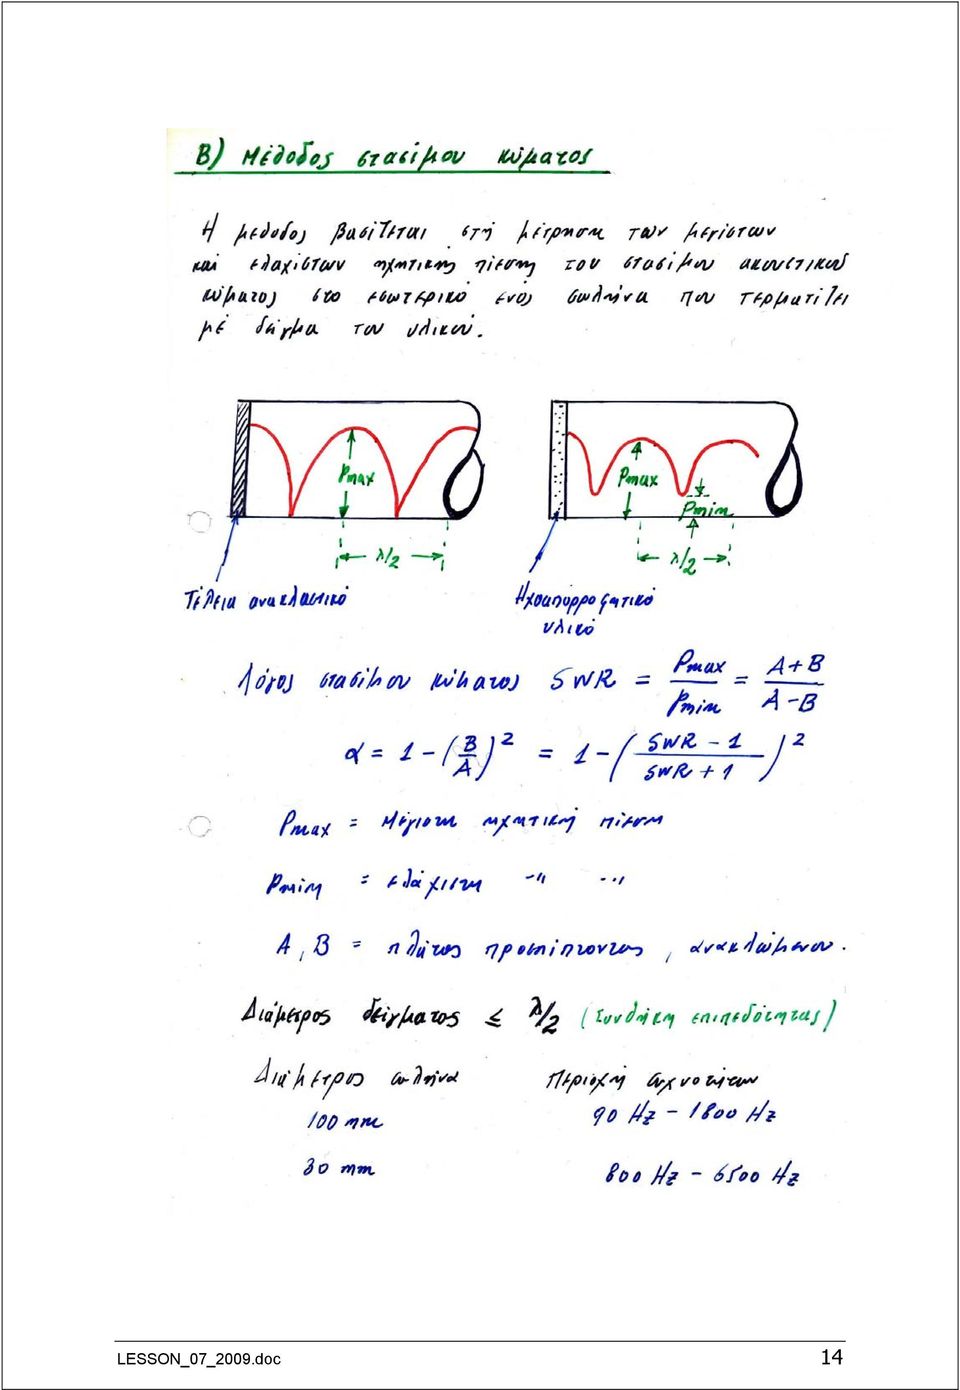 Β) Μέθοδος στασίμου κύματος
Η μέθοδος βασίζεται στή μέτρηση των μεγίστων
και ελαχίστων ηχητικής πίεσης του στασίμου ακουστικού
κύματος στο εσωτερικό ενός σωλήνα που τερματίζει
μέ δείγμα του υλικού.
Pmax Pmax
Pmin
λ/2 λ/2
Τέλεια ανακλαστικό Ηχοαπορροφητικό
υλικό
Λόγος στασίμου κύματος SWR = Pmax / Pmin = A+B / A-B
α = 1 - (B/A)² = 1 - (SWR - 1 / SWR + 1)²
Pmax = Μέγιστη ηχητική πίεση
Pmin = ελάχιστη -" -"
A, B = πλάτος προσπίπτοντος, ανακλώμενου.
Διάμετρος δείγματος ≤ λ/2 (Συνθήκη επιπεδότητας)
Διάμετρος σωλήνα Περιοχή συχνοτήτων
100 mm 90 Hz - 1800 Hz
30 mm 800 Hz - 6500 Hz
LESSON_07_2009.doc 14